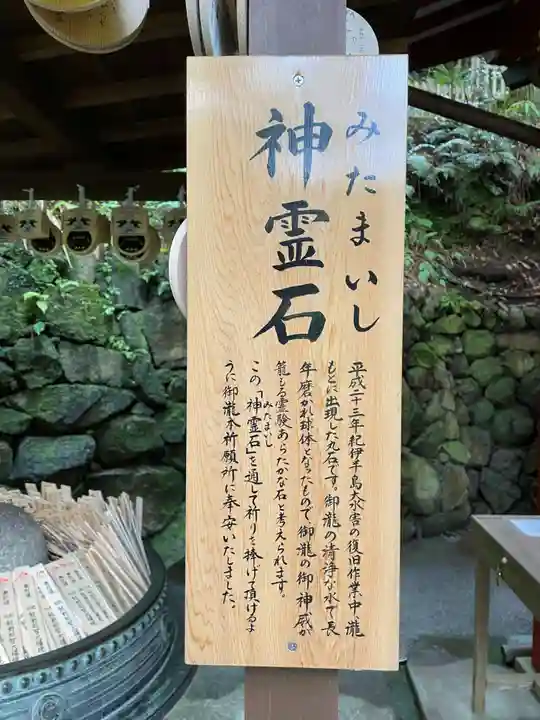 みたまいし
神霊石
平成二十三年紀伊半島大水害の復旧作業中、瀧
もとに出現した丸石です。御瀧の清浄な水で長
年磨かれ球体となったもので、御瀧の御神威が
籠もる霊験あらたかな石と考えられます。
この「神霊石」を通して祈りを捧げて頂けるよ
みたまいし
うに御瀧本祈願所に奉安いたしました。